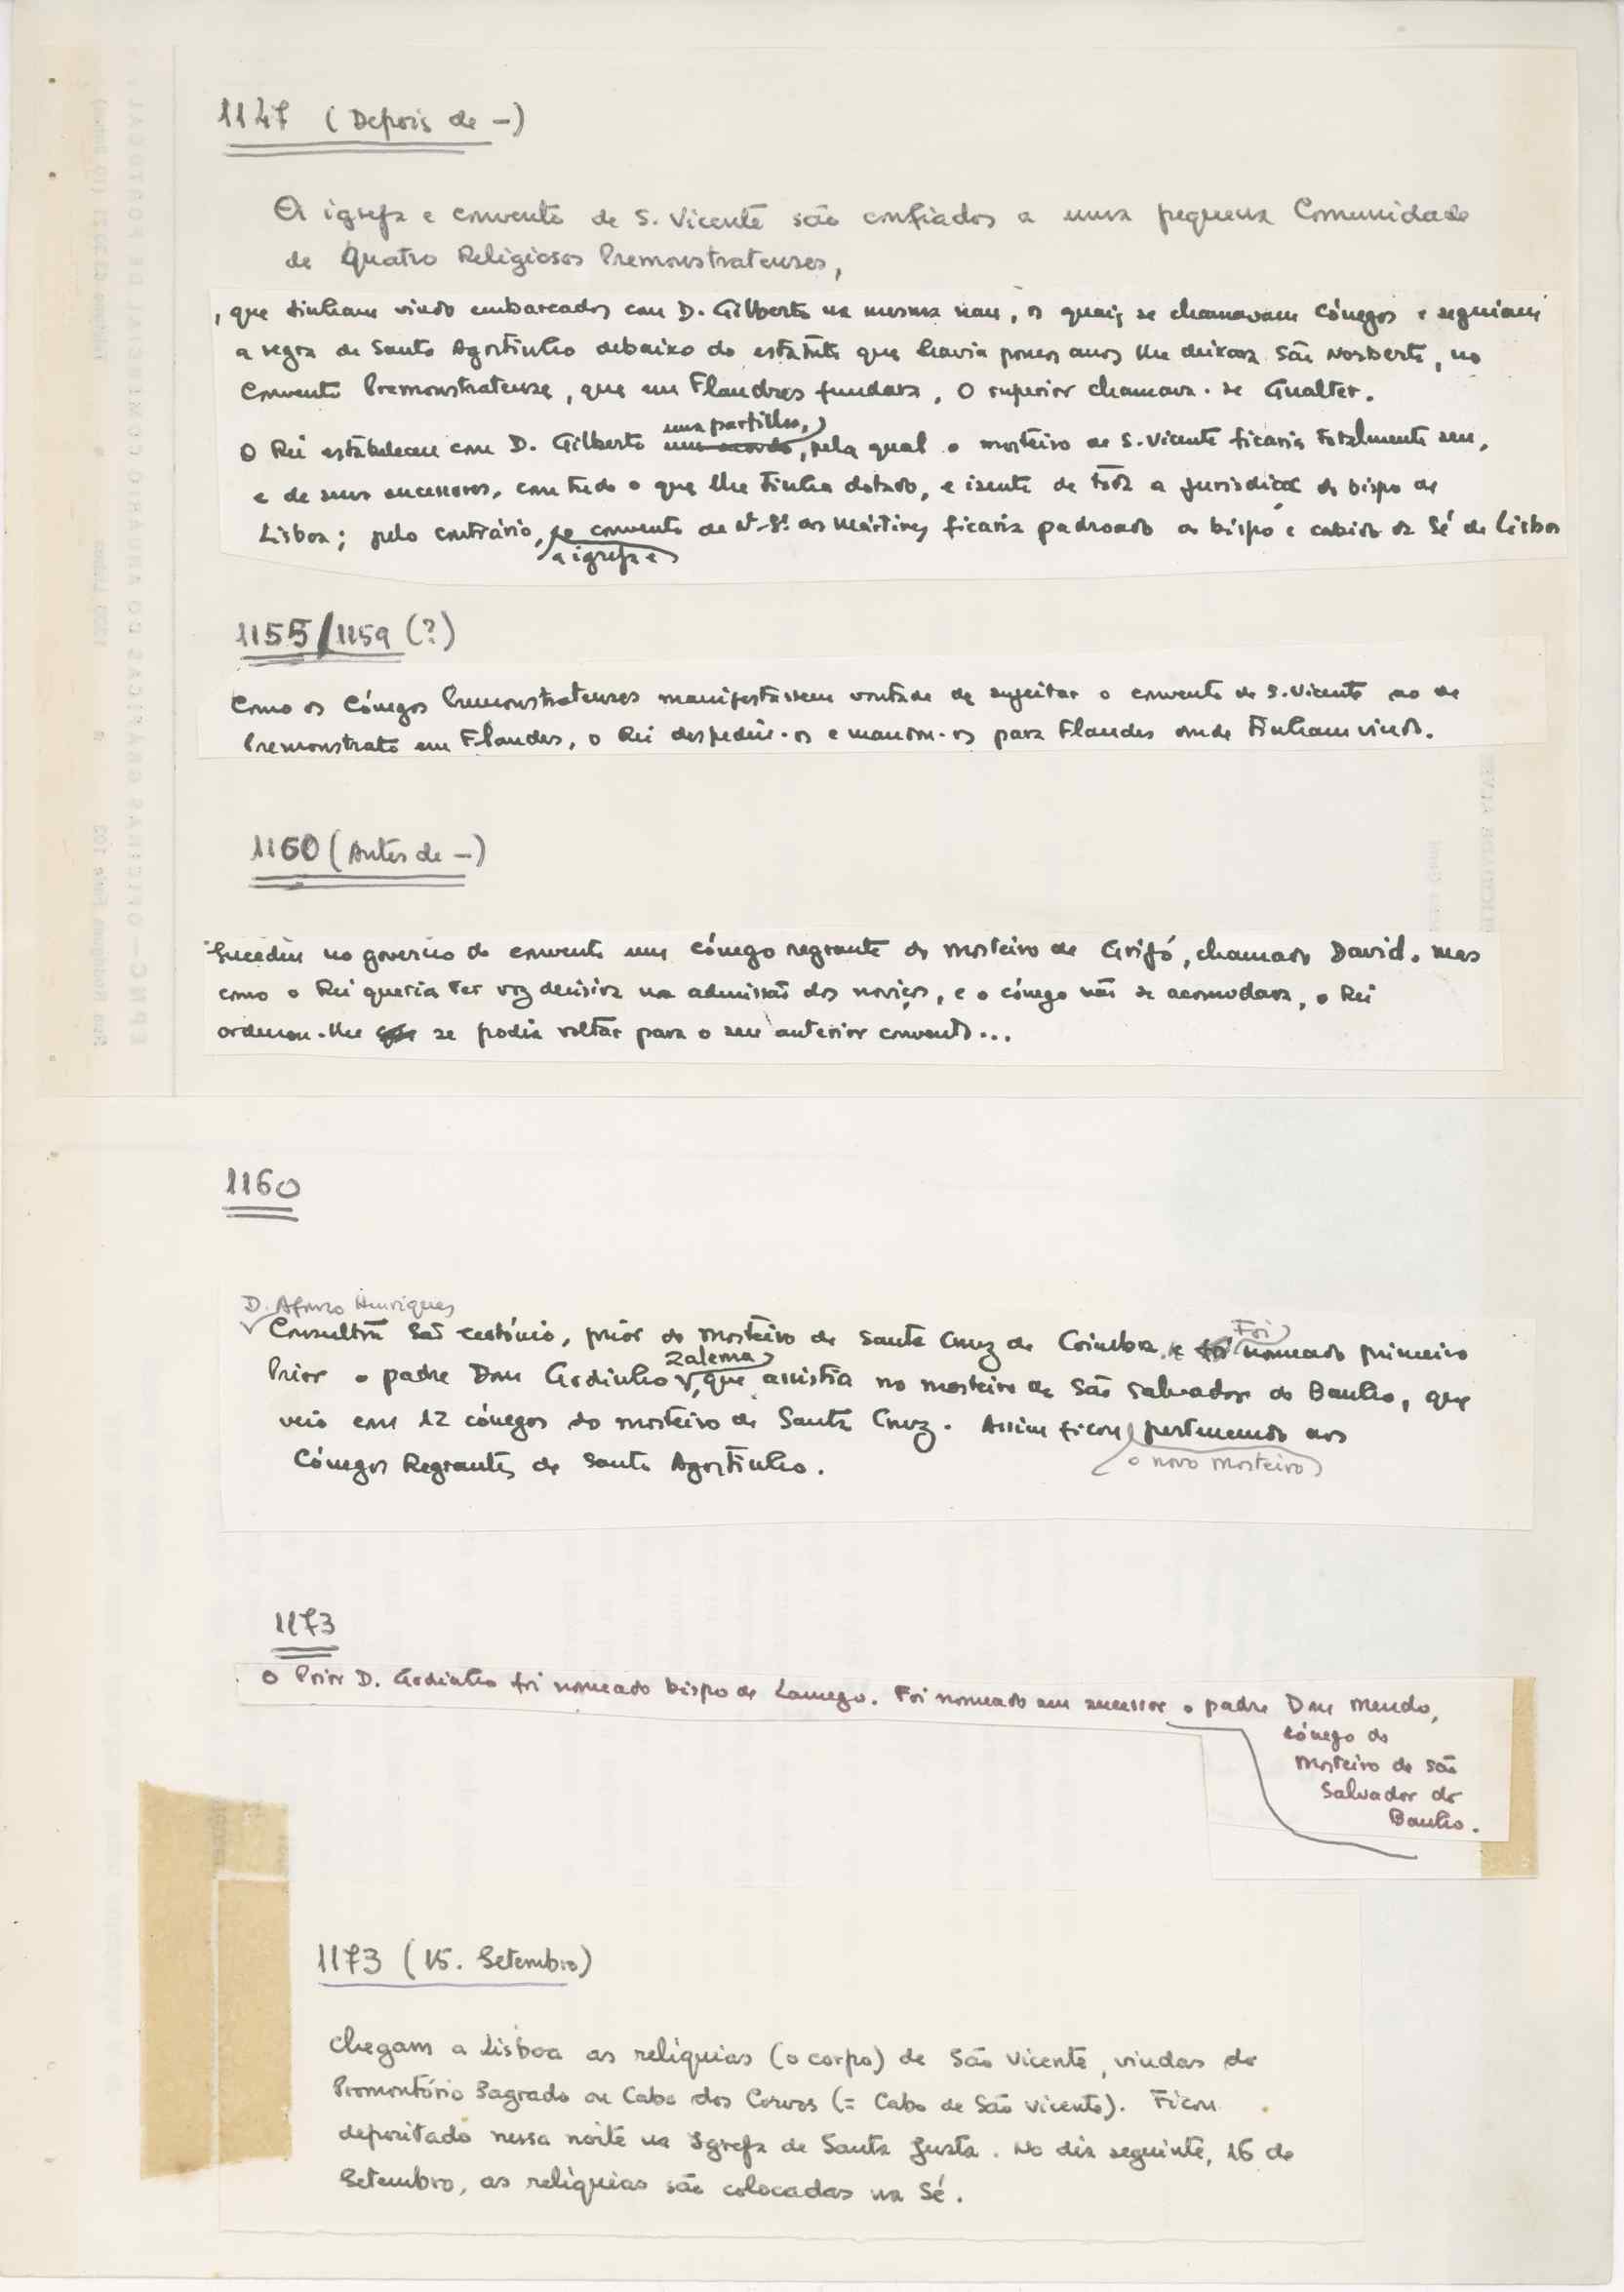 1147 (Depois de -)
A igreja e convento de S. Vicente são confiados a uma pequena Comunidade
de Quatro Religiosos Premonstratenses,
, que tinham vindo embarcados com D. Gilberto na mesma nau, os quais se chamavam Cónegos e seguiam
a regra de Santo Agostinho debaixo do estatuto que havia poucos anos lhe deixara São Norberto, no
Convento Premonstratense, que em Flandres fundara. O superior chamava-se Gualter.
uma partilha,
O Rei estabeleceu com D. Gilberto um acordo, pela qual o mosteiro de S. Vicente ficaria totalmente seu,
e de seus sucessores, com tudo o que lhe tinha dotado, e isento de toda a jurisdição do bispo de
Lisboa; pelo contrário, o convento de Nª Sª dos Mártires ficaria padroado do bispo e cabido da Sé de Lisboa
a igreja e
1155/1159 (?)
Como os Cónegos Premonstratenses manifestassem vontade de sujeitar o convento de S. Vicente ao de
Premonstrato em Flandes, o Rei despediu-os e mandou-os para Flandes onde tinham vindo.
1160 (Antes de -)
Sucedeu no governo do convento um cónego regrante do mosteiro de Grijó, chamado David. Mas
como o Rei queria ter voz decisiva na admissão dos noviços, e o cónego não se acomodava, o Rei
ordenou-lhe que se podia voltar para o seu anterior convento...
1160
D. Afonso Henriques
Consultou São Teotónio, prior do mosteiro de Santa Cruz de Coimbra, e foi Foi nomeado primeiro
Zalema
Prior o padre Dom Godinho, que assistia no mosteiro de São Salvador do Banho, que
veio com 12 cónegos do mosteiro de Santa Cruz. Assim ficou pertencendo aos
o novo mosteiro
Cónegos Regrantes de Santo Agostinho.
1173
O Prior D. Godinho foi nomeado bispo de Lamego. Foi nomeado seu sucessor o padre Dom Mendo,
cónego do
Mosteiro de São
Salvador do
Banho.
1173 (15. Setembro)
Chegam a Lisboa as relíquias (o corpo) de São Vicente, vindas do
Promontório Sagrado ou Cabo dos Corvos (= Cabo de São Vicente). Ficou
depositado nessa noite na Igreja de Santa Justa. No dia seguinte, 16 de
Setembro, as relíquias são colocadas na Sé.